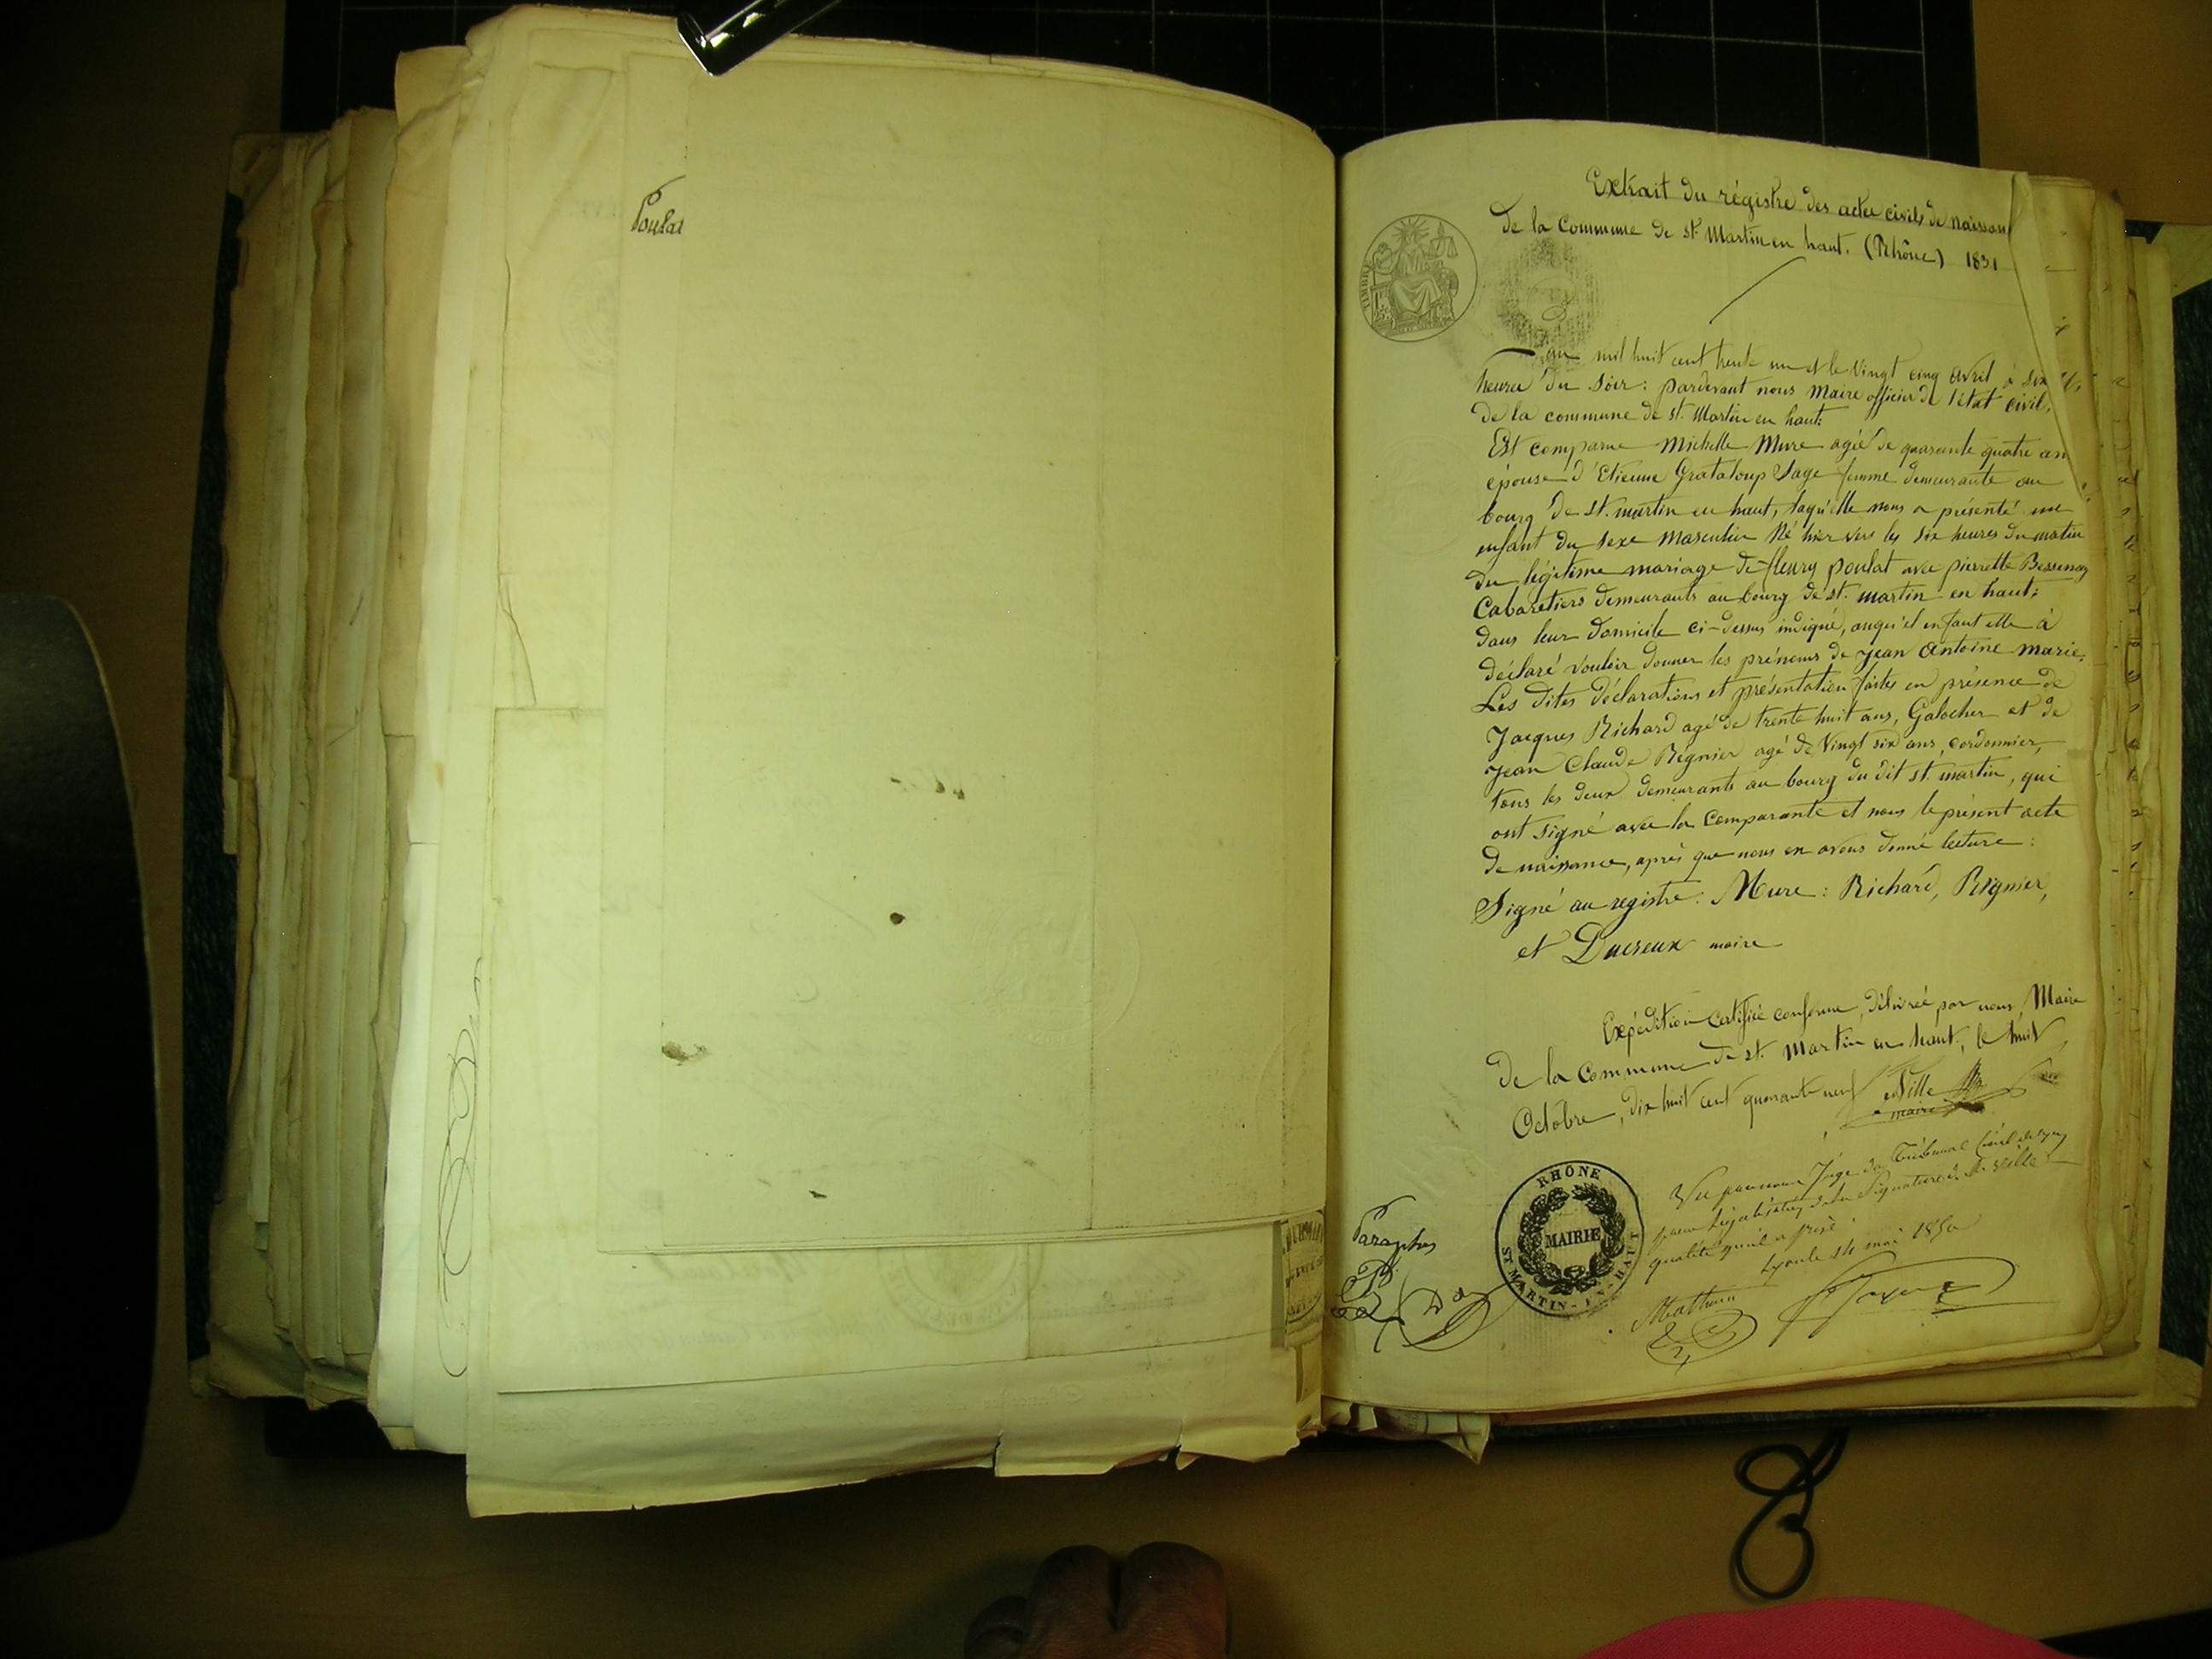 Poulat
Extrait du régistre des actes civils de naissan
de la Commune de st. Martin en haut. (Rhône) 1831
TIMBRE
L'an mil huit cent trente un et le Vingt cinq avril à six
heures du soir : pardevant nous Maire officier de l'état civil,
de la commune de st. Martin en haut:
Est comparue Michelle Mure agée de quarante quatre an
épouse d'Etienne Grataloup Sage femme demeurante au
bourg de st. martin en haut, laqu'elle nous a présenté un
enfant du sexe Masculin Né hier vers les six heures du matin
du légitime mariage de fleury poulat avec pierrette Bessenay
Cabaretiers demeurants au bourg de st. martin en haut;
dans leur domicile ci-dessus indiqué, auqu'el enfant elle à
déclaré vouloir donner les prénoms de Jean Antoine marie.
Les dites déclarations et présentation faites en présence de
Jacques Richard agé de trente huit ans, Galocher et de
Jean Claude Régnier agé de Vingt six ans, cordonnier,
tous les deux demeurants au bourg du dit st. martin, qui
ont signé avec la Comparante et nous le présent acte
de naissance, après que nous en avons donné lecture :
Signé au registre : Mure : Richard, Régnier,
et Ducreux maire
Expédition certifiée conforme, délivrée par nous, Maire
de la commune de st. Martin en haut, le huit
Octobre, dix huit cent quarante neuf
maire
Vu par nous Juge du Tribunal Civil de Lyon
pour légalisation de la Signature de Mr
qualité qu'il a prise
Lyon le 14 mai 1850
RHÔNE
MAIRIE
ST MARTIN-EN-HAUT
Paraphes